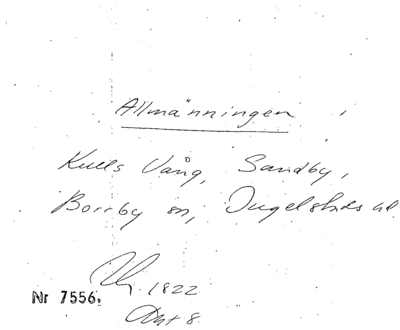 Allmänningen
Kulls Vång, Sandby,
Borrby sn, Ingelstads hd
1822
Nr 7556.
Akt 8